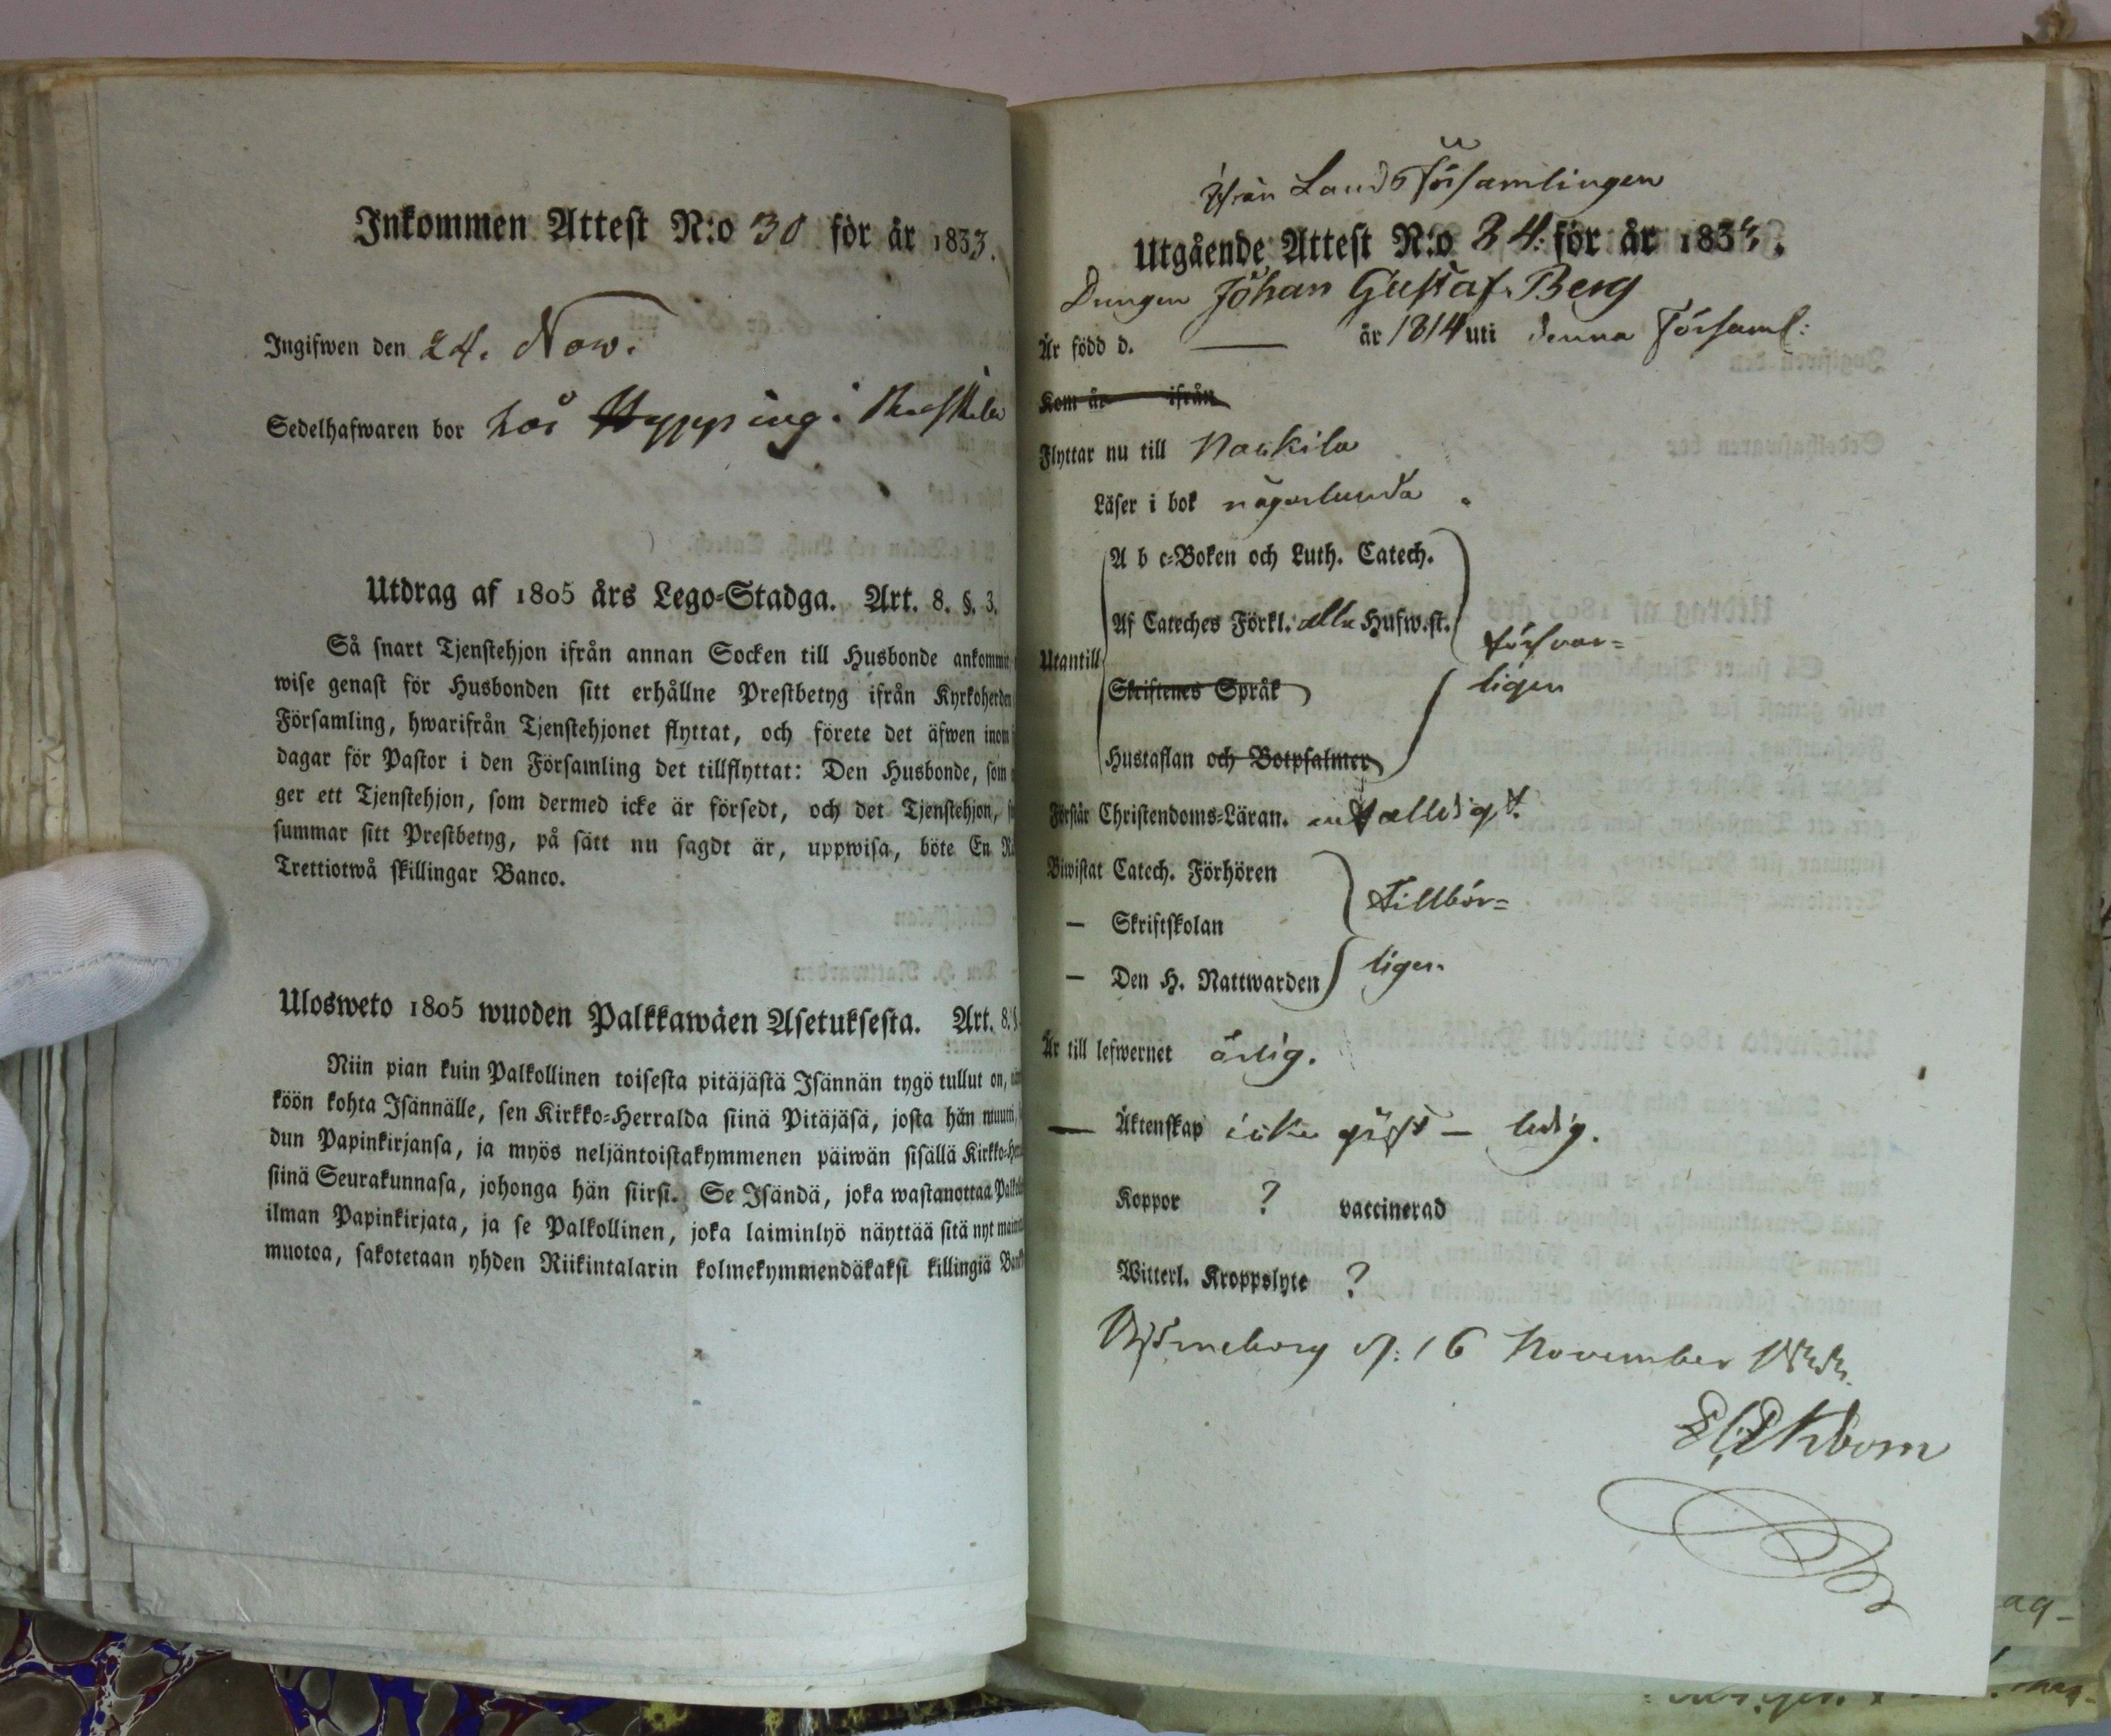 Inkommen Attest N:o 30 för år 1833.
Ingifwen den 24. Now.
Sedelhafwaren bor hos
Utdrag af 1805 års Lego-Stadga. Art. 8. §. 3.
Så snart Tjenstehjon ifrån annan Socken till Husbonde ankommit
wise genast för Husbonden sitt erhållne Prestbetyg ifrån Kyrkoherden
Församling, hwarifrån Tjenstehjonet flyttat, och förete det äfwen inom
dagar för Pastor i den Församling det tillflyttat: Den Husbonde, som
ger ett Tjenstehjon, som dermed icke är försedt, och det Tjenstehjon,
summar sitt Prestbetyg, på sätt nu sagdt är, uppwisa, böte En
Trettiotwå skillingar Banco.
Ulosweto 1805 wuoden Palkkawäen Asetuksesta. Art. 8. §
Niin pian kuin Palkollinen toisesta pitäjästä Isännän tygö tullut on,
köön kohta Isännälle, sen Kirkko-Herralda siinä Pitäjäsä, josta hän muutti,
dun Papinkirjansa, ja myös neljäntoistakymmenen päiwän sisällä Kirkko-
siinä Seurakunnasa, johonga hän siirsi. Se Isändä, joka wastanottaa
ilman Papinkirjata, ja se Palkollinen, joka laiminlyö näyttää sitä nyt
muotoa, sakotetaan yhden Riikintalarin kolmekymmendäkaksi killingiä
ifrån Landsförsamlingen
Utgående Attest N:o 84. för år 183
Drängen Johan Gustaf Berg
Är född d. — år 1814 uti denna Församl:
Kom år ifrån
Flyttar nu till Nackila
Läser i bok någorlunda
A b c-Boken och Luth. Catech.
Af Cateches Förkl. alla Hufw.st.
försvar=
Utantill
Skriftenes Språk
ligen
Hustaflan och Botpsalmer
Förstår Christendoms-Läran. enfalldigt.
Biwistat Catech. Förhören
tillbör=
— Skriftskolan
— Den H. Nattwarden
ligen.
Är till lefwernet ärlig.
— Äktenskap icke gift — ledig.
Koppor ? vaccinerad
Witterl. Kroppslyte ?
Björneborg d: 16 November
Ekbom